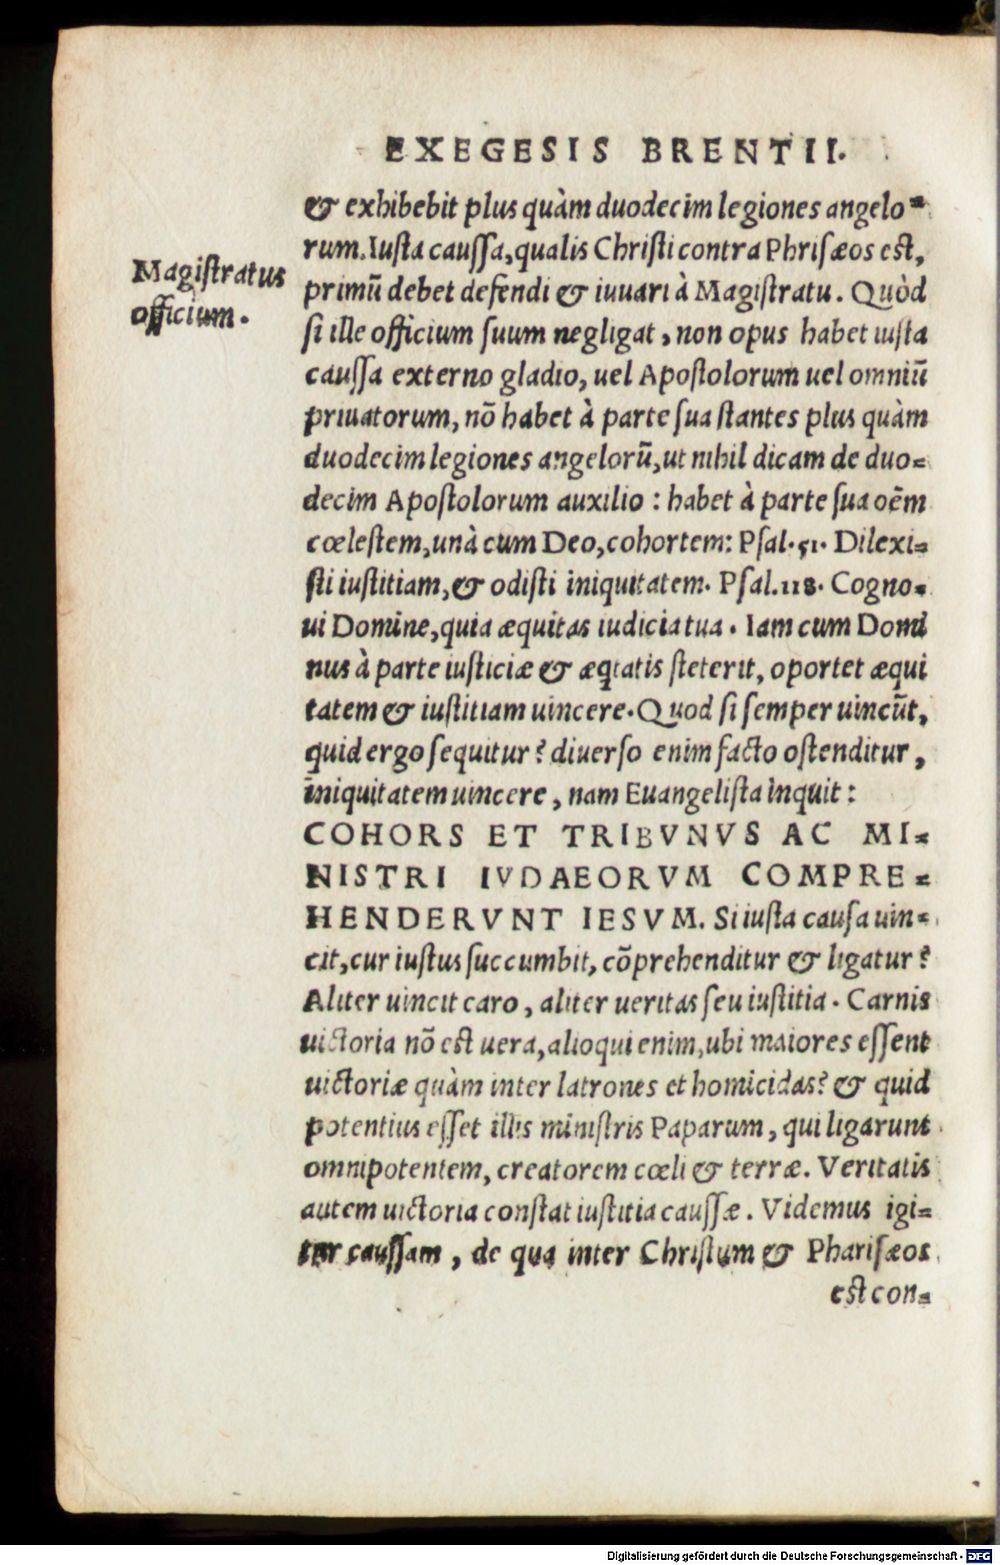 EXEGESIS BRENTII.
& exhibebit plus quàm duodecim legiones angelo=
rum. Iusta caussa, qualis Christi contra Phrisæos est,
Magistratus
officium.
primũ debet defendi & iuuari à Magistratu. Quòd
si ille officium suum negligat, non opus habet iusta
caussa externo gladio, uel Apostolorum uel omniũ
priuatorum, nõ habet à parte sua stantes plus quàm
duodecim legiones angelorũ, ut nihil dicam de duo=
decim Apostolorum auxilio : habet à parte sua oẽm
cœlestem, unà cum Deo, cohortem: Psal. 51. Dilexi=
sti iustitiam, & odisti iniquitatem. Psal. 118. Cogno=
ui Domine, quia æquitas iudicia tua. Iam cum Domi
nus à parte iusticiæ & æqtatis steterit, oportet æqui
tatem & iustitiam uincere. Quod si semper uincũt,
quid ergo sequitur? diuerso enim facto ostenditur,
iniquitatem uincere, nam Euangelista inquit:
COHORS ET TRIBVNVS AC MI=
NISTRI IVDAEORVM COMPRE=
HENDERVNT IESVM. Si iusta causa uin=
cit, cur iustus succumbit, cõprehenditur & ligatur?
Aliter uincit caro, aliter ueritas seu iustitia. Carnis
uictoria nõ est uera, alioqui enim, ubi maiores essent
uictoriæ quàm inter latrones et homicidas? & quid
potentius esset illis ministris Paparum, qui ligarunt
omnipotentem, creatorem cœli & terræ. Veritatis
autem uictoria constat iustitia caussæ. Videmus igi=
tur caussam, de qua inter Christum & Pharisæos
est con=
Digitalisierung gefördert durch die Deutsche Forschungsgemeinschaft - DFG